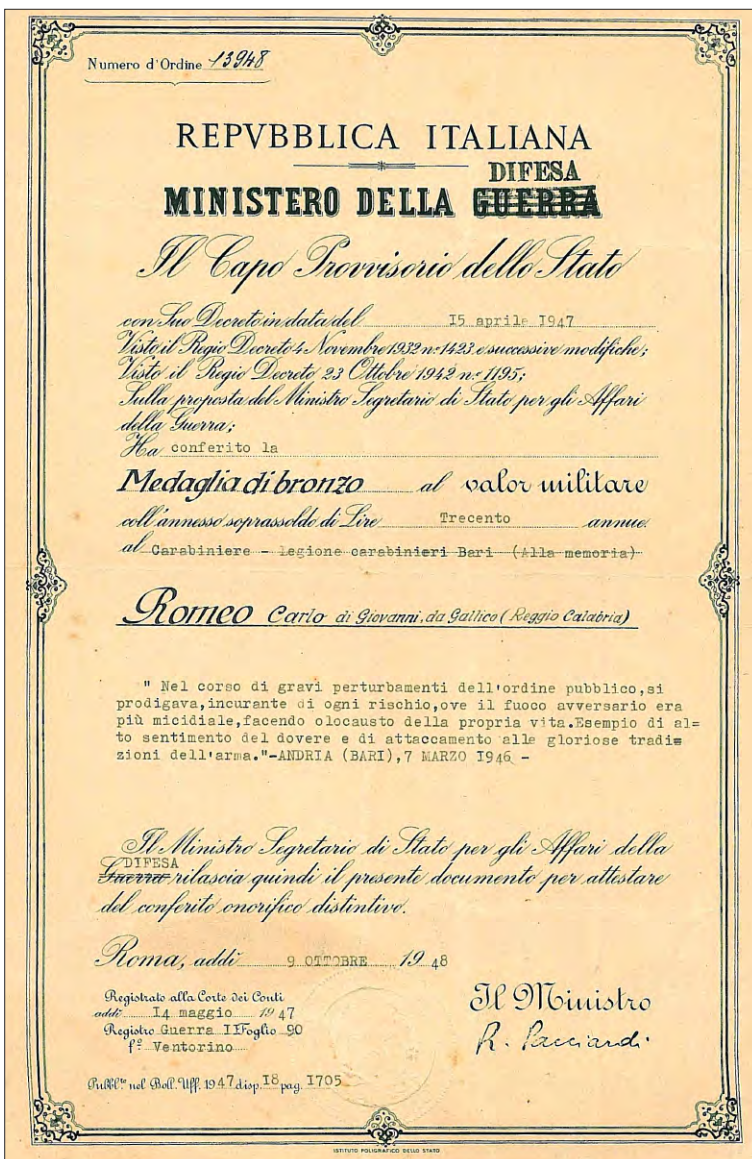 Numero d'Ordine 13948
REPVBBLICA ITALIANA
DIFESA
MINISTERO DELLA GUERRA
Il Capo Provvisorio dello Stato
con Suo Decreto in data del 15 aprile 1947
Visto il Regio Decreto 4 Novembre 1932 nº 1423 e successive modifiche;
Visto il Regio Decreto 23 Ottobre 1942 nº 1195;
Sulla proposta del Ministro Segretario di Stato per gli Affari
della Guerra;
Ha conferito la
Medaglia di bronzo al valor militare
coll'annesso soprassoldo di Lire Trecento annue
al Carabiniere - legione carabinieri Bari (Alla memoria)
Romeo Carlo di Giovanni, da Gallico (Reggio Calabria)
" Nel corso di gravi perturbamenti dell'ordine pubblico,si
prodigava,incurante di ogni rischio,ove il fuoco avversario era
più micidiale,facendo olocausto della propria vita.Esempio di al=
to sentimento del dovere e di attaccamento alle gloriose tradi=
zioni dell'arma."-ANDRIA (BARI),7 MARZO 1946 -
Il Ministro Segretario di Stato per gli Affari della
DIFESA
Guerra rilascia quindi il presente documento per attestare
del conferito onorifico distintivo.
Roma, addì 9 OTTOBRE 19 48
Registrato alla Corte dei Conti
addì 14 maggio 1947
Registro Guerra II Foglio 90
fº Ventorino
Il Ministro
R. Pacciardi
Pubbl.to nel Boll. Uff. 1947 disp. 18 pag. 1705
ISTITUTO POLIGRAFICO DELLO STATO